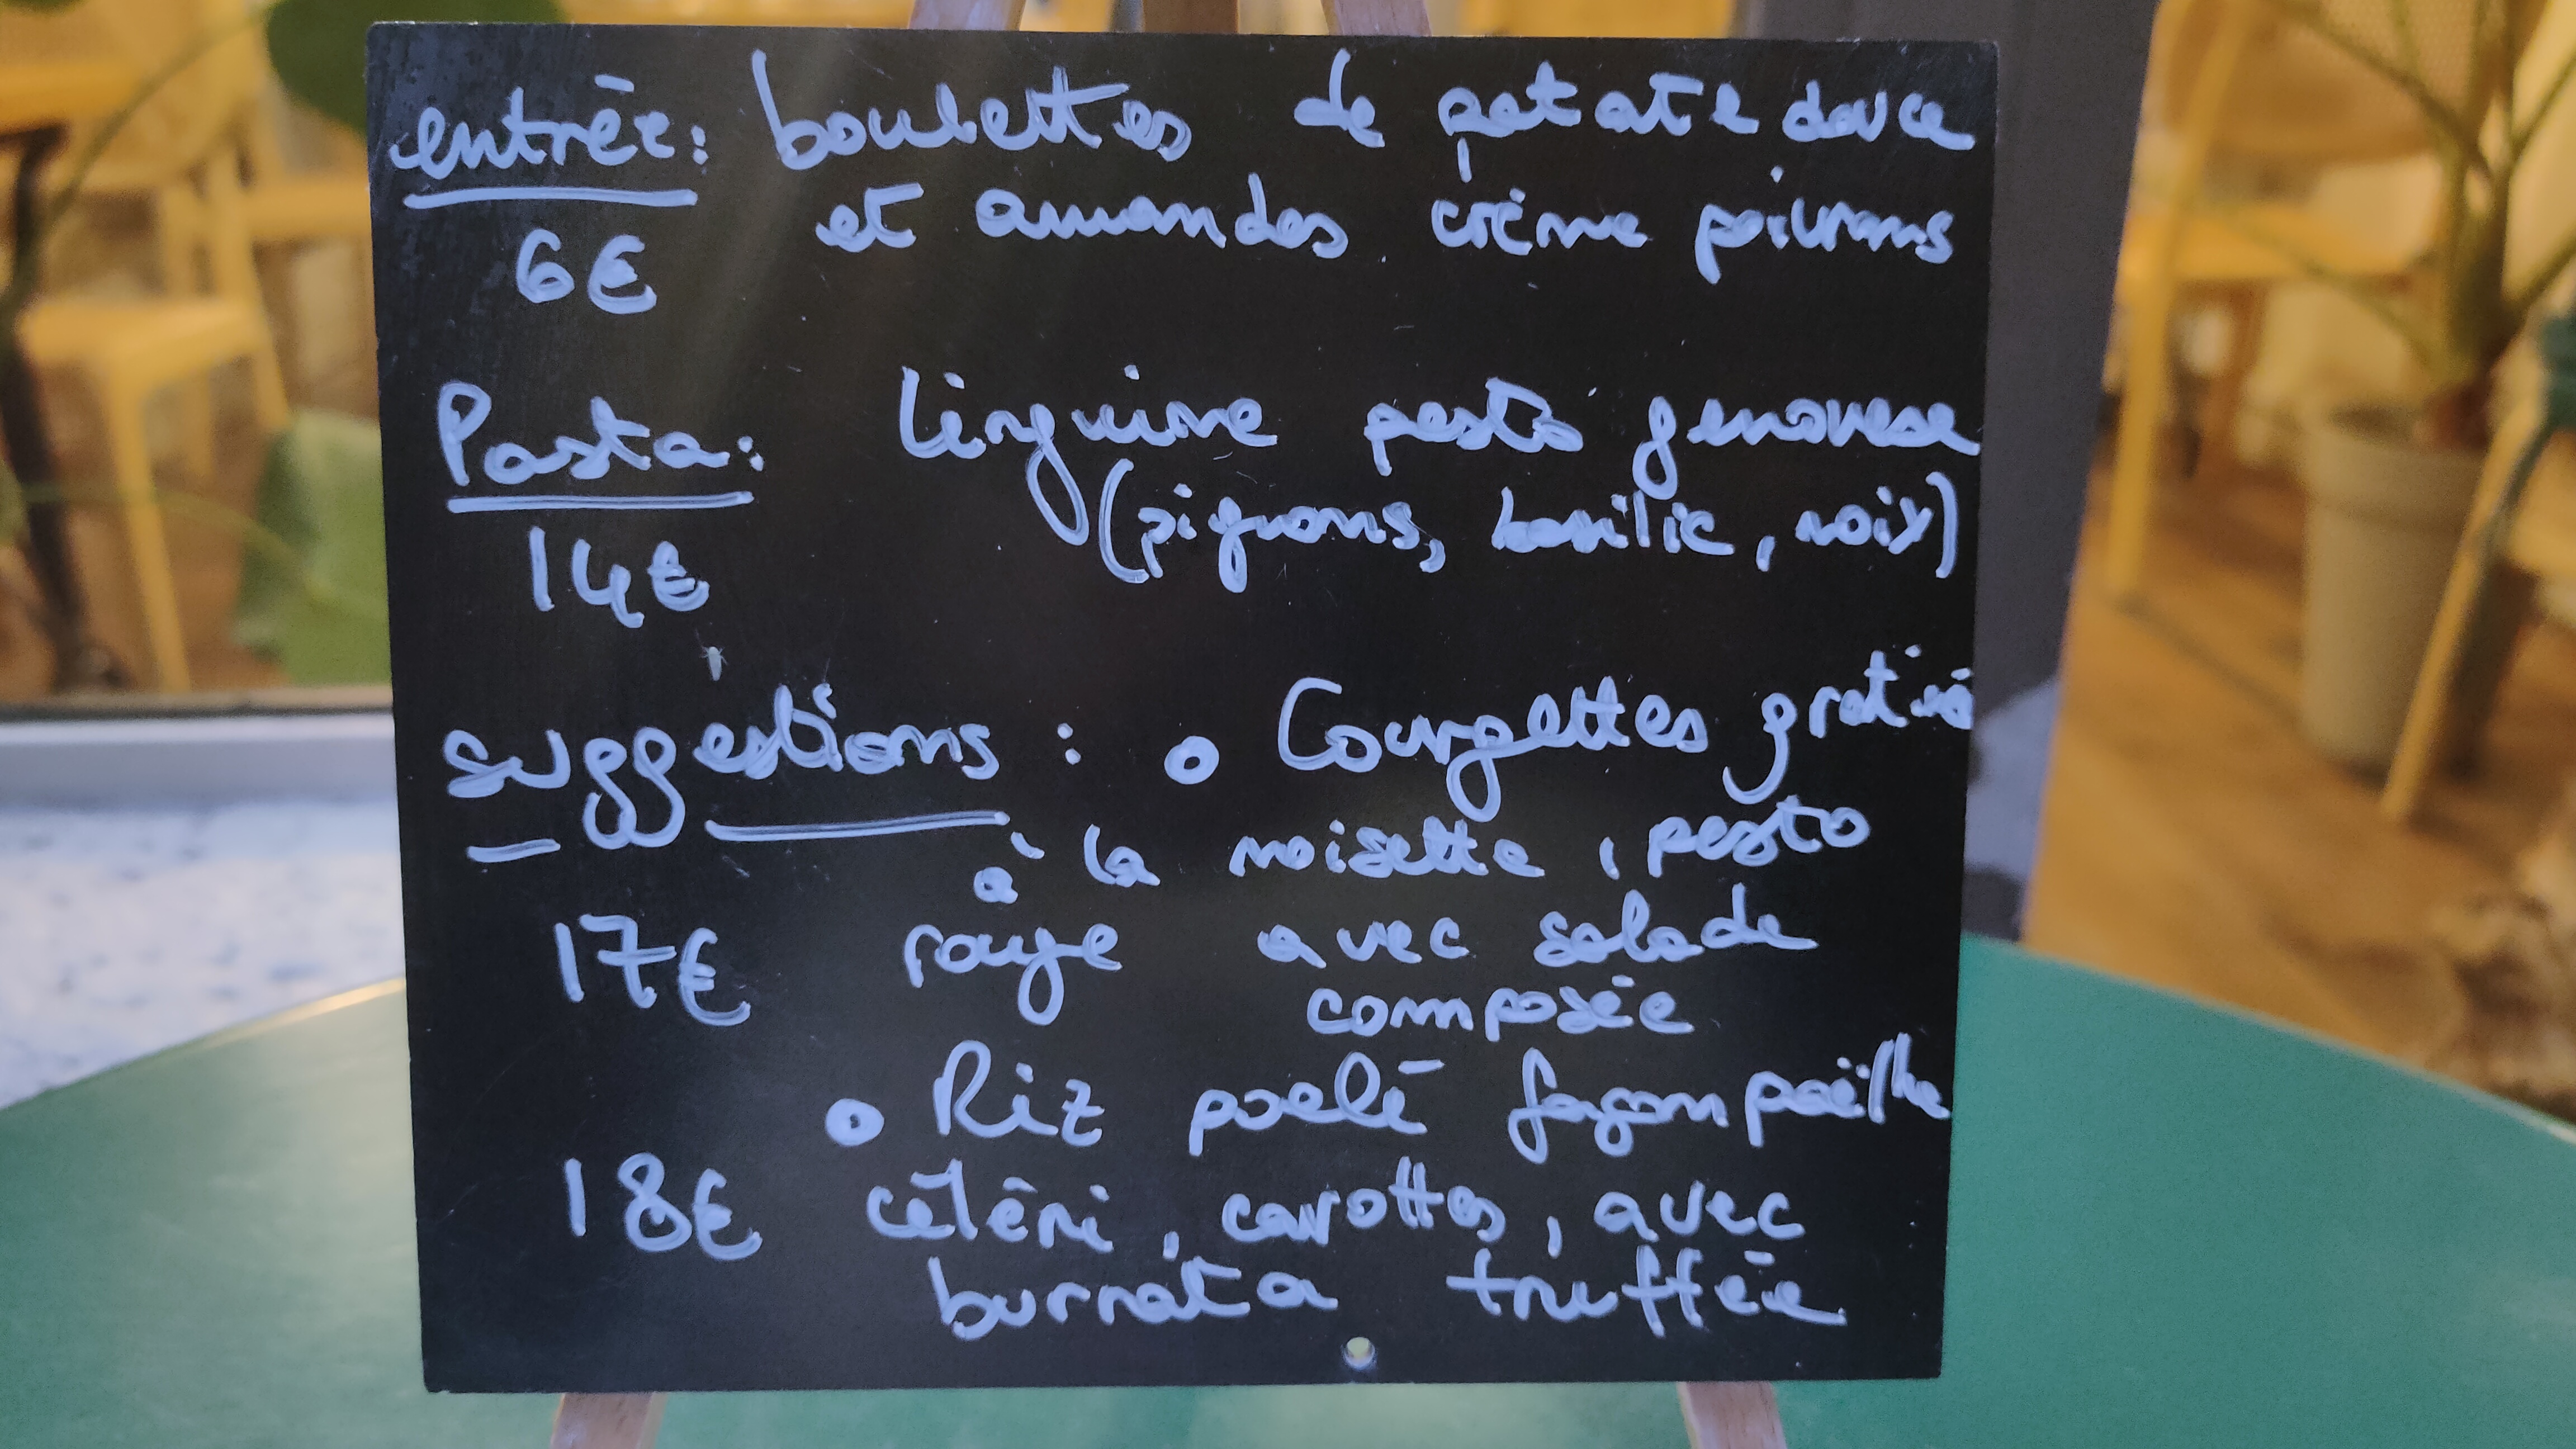 entrée: boulettes de patate douce
et amandes crème poivrons
6€
Pasta: linguine pesto genovese
(pignons, basilic, noix)
14€
suggestions : • Courgettes gratiné
à la noisette, pesto
17€ rouge avec salade
composée
• Riz poelé façon paëlla
18€ céléri, carottes, avec
burrata truffée